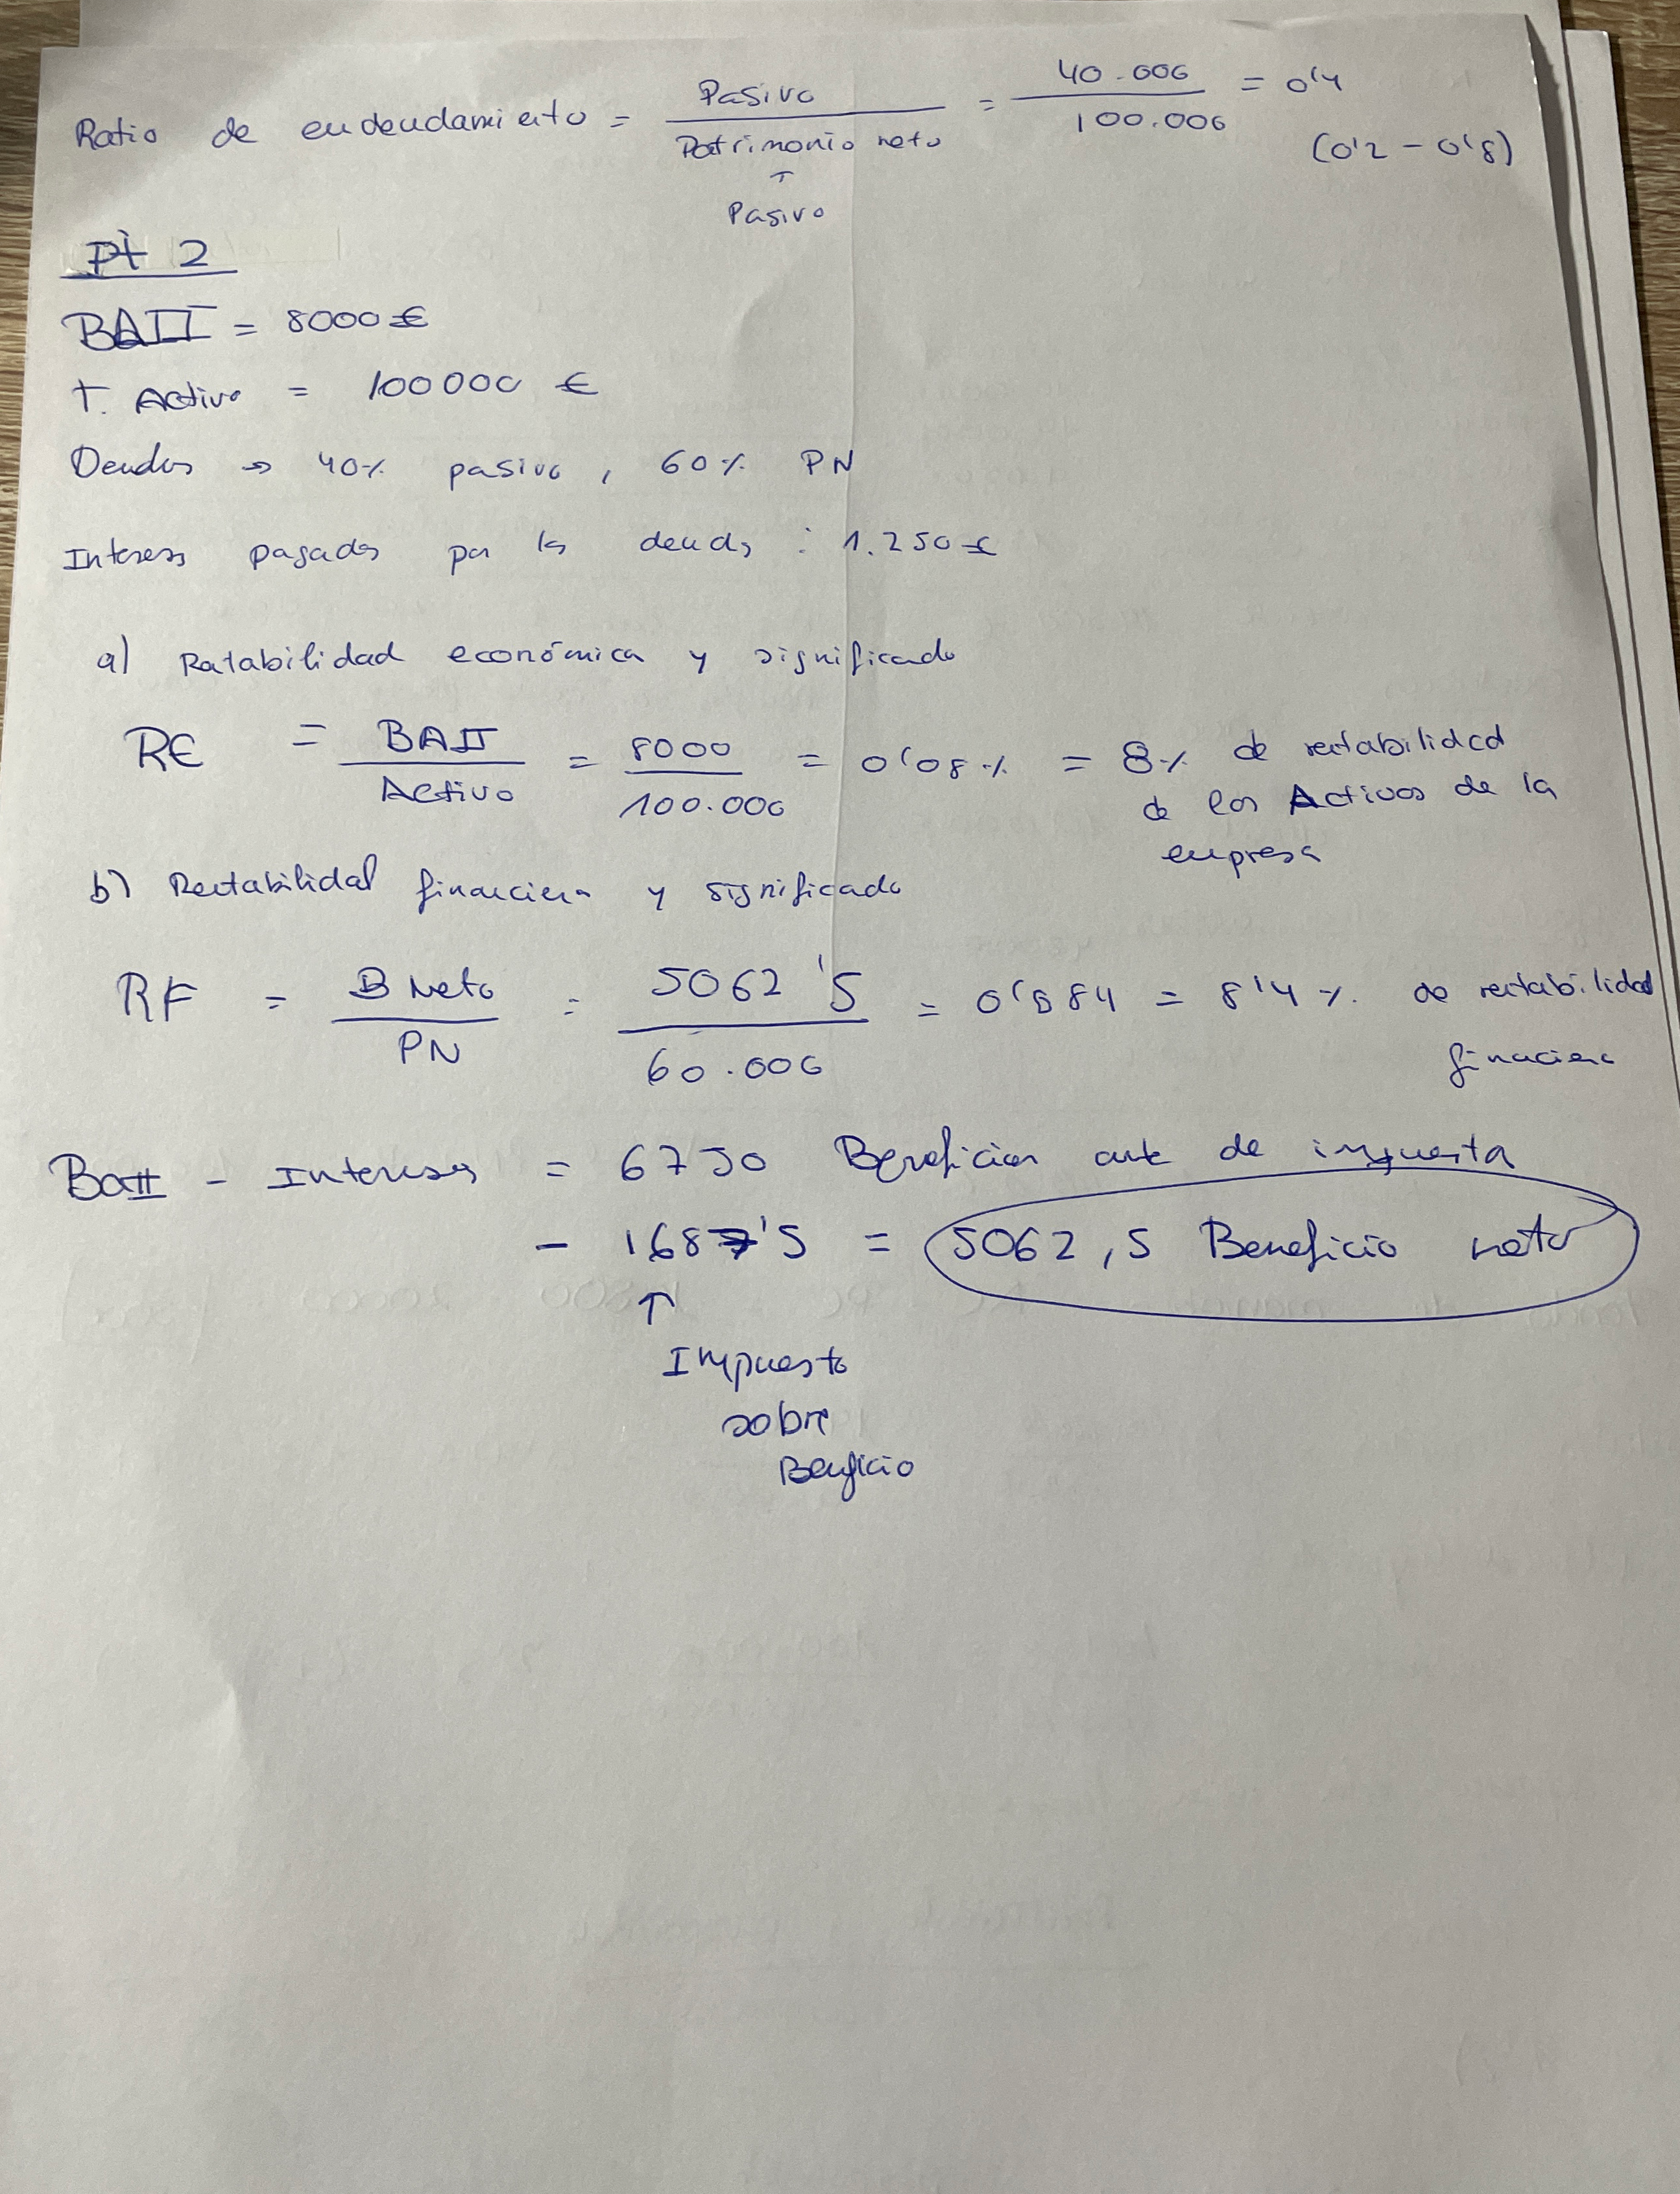 Ratio de endeudamiento = Pasivo / Patrimonio neto + Pasivo = 40.000 / 100.000 = 0'4
(0'2 - 0'8)
Pt 2
BAII = 8000 €
T. Activo = 100000 €
Deudas → 40% pasivo, 60% PN
Intereses pagados por las deudas : 1.250 €
a) Rentabilidad económica y significado
RE = BAII / Activo = 8000 / 100.000 = 0'08 % = 8% de rentabilidad
de los Activos de la
empresa
b) Rentabilidad financiera y significado
RF = B Neto / PN = 5062'5 / 60.000 = 0'084 = 8'4 % de rentabilidad
financiera
BaII - Intereses = 6750 Beneficios ante de impuesta
- 1687'5 = 5062,5 Beneficio neto
↑
Impuesto
sobre
Beneficio